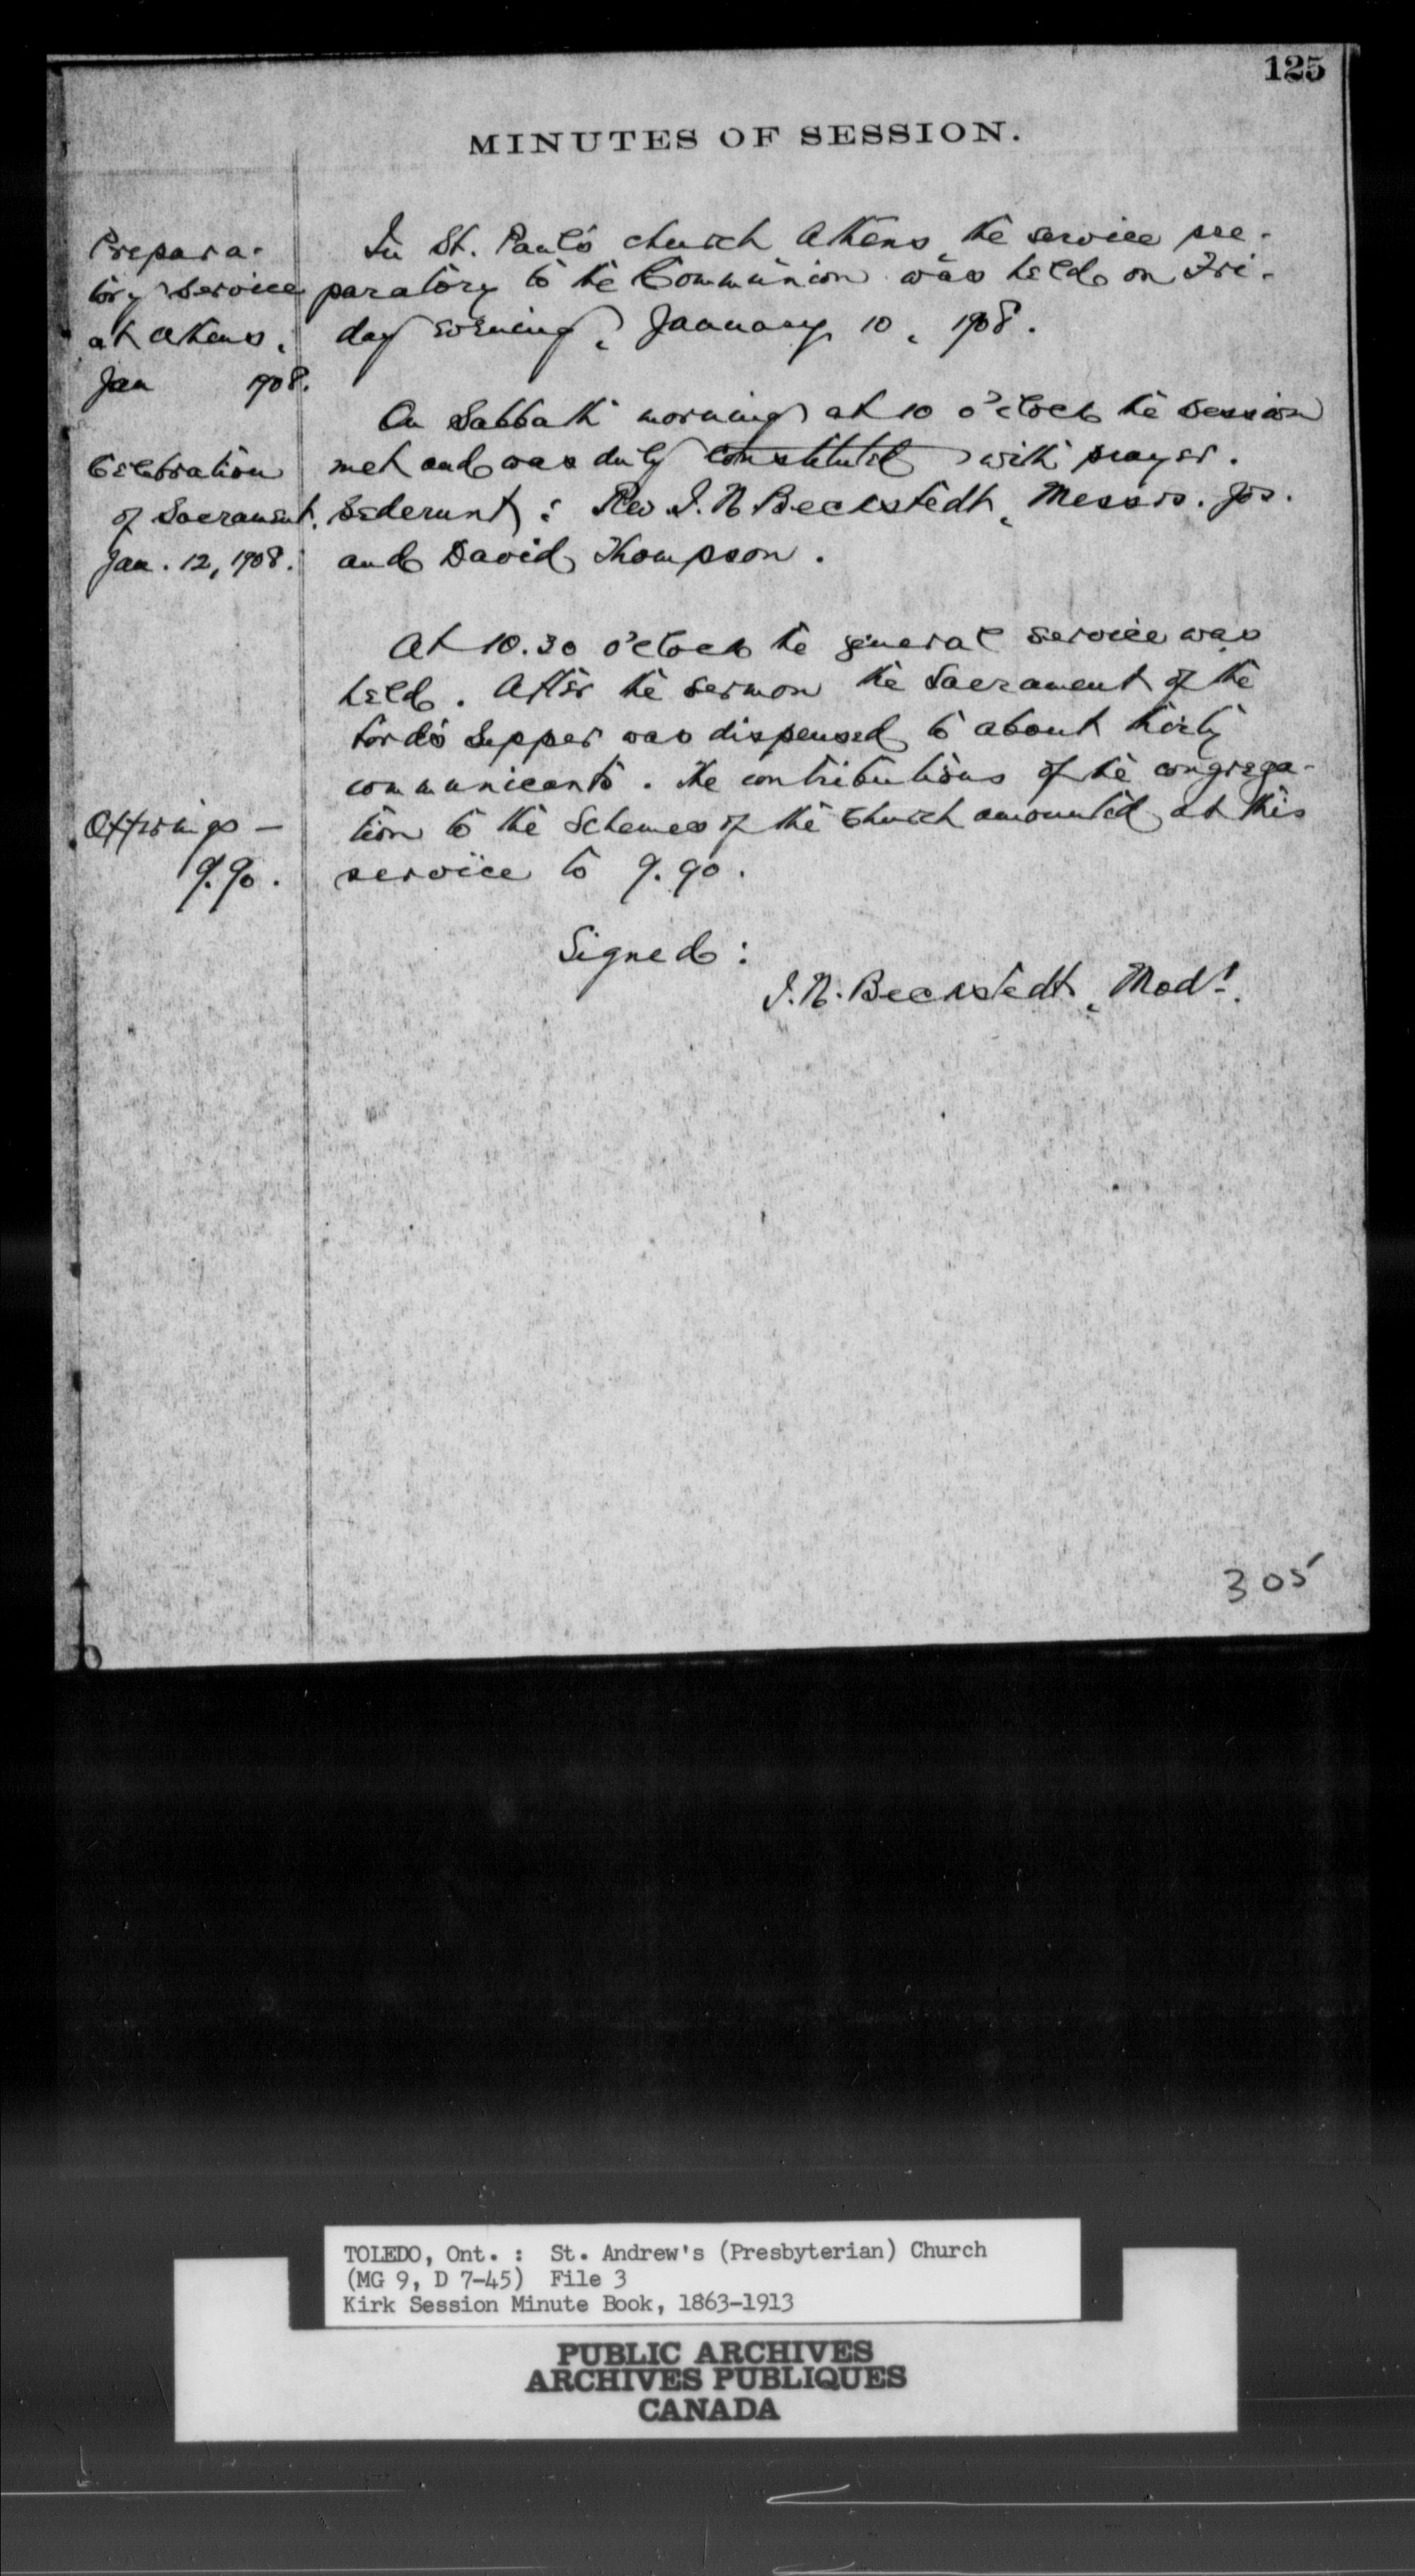 125
MINUTES OF SESSION.
Prepara-
tory service
at Athens,
Jan 1908.
In St. Paul's church Athens, the service pre-
paratory to the Communion was held on Fri-
day evening, January 10, 1908.
Celebration
of Sacrament,
Jan. 12, 1908.
On Sabbath morning at 10 o'clock the session
met and was duly constituted with prayer.
Sederunt: Rev. I. N. Beckstedt, Messrs. Jos.
and David Thompson.
At 10.30 o'clock the general service was
held. After the sermon the Sacrament of the
Lord's Supper was dispensed to about thirty
communicants. The contributions of the congrega-
tion to the Schemes of the Church amounted at this
service to 9.90.
Offerings —
9.90.
Signed:
I. N. Beckstedt, Modr.
305
TOLEDO, Ont. : St. Andrew's (Presbyterian) Church
(MG 9, D 7-45) File 3
Kirk Session Minute Book, 1863-1913
PUBLIC ARCHIVES
ARCHIVES PUBLIQUES
CANADA